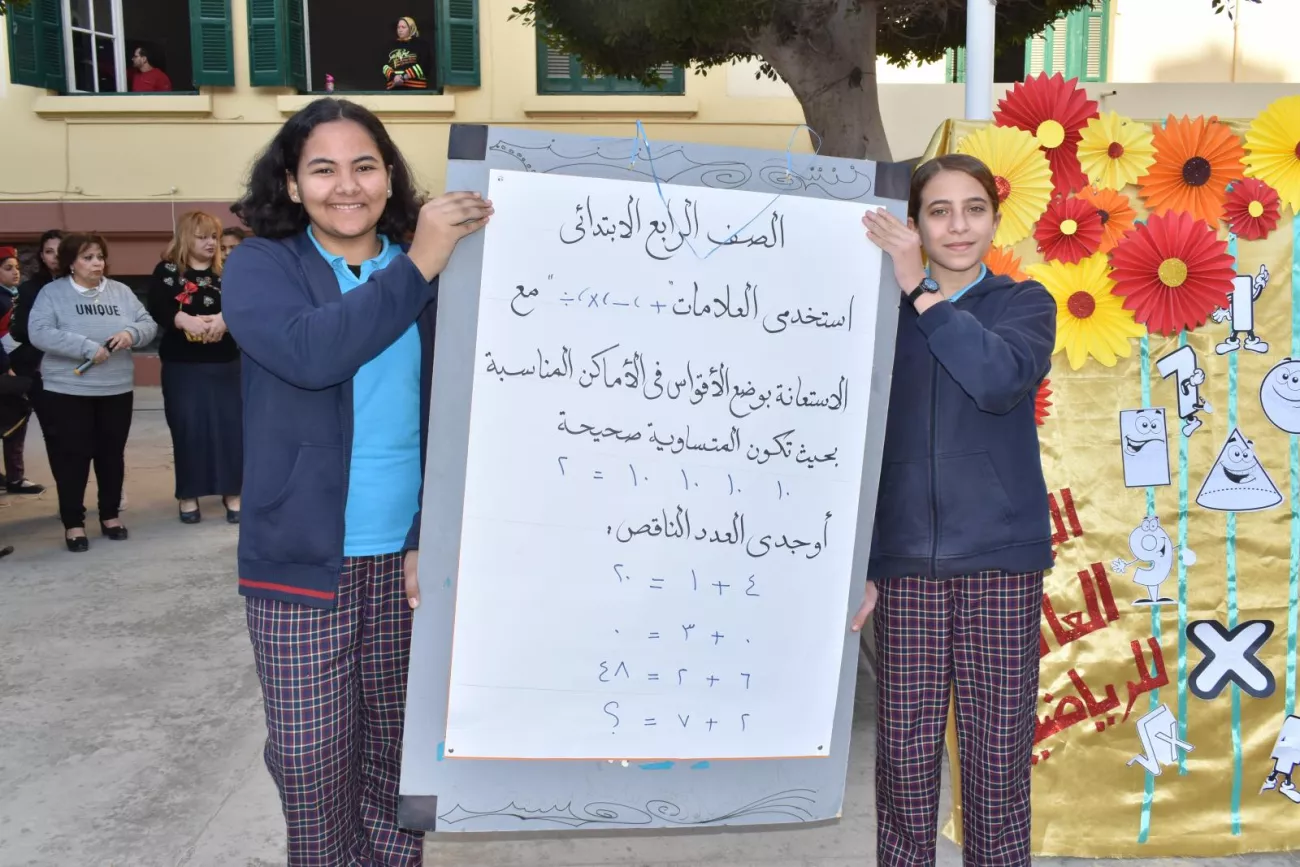 الصف الرابع الابتدائى
استخدمى العلامات "+ ، − ، × ، ÷" مع
الاستعانة بوضع الأقواس فى الأماكن المناسبة
بحيث تكون المتساوية صحيحة
١٠ ١٠ ١٠ ١٠ = ٢
أوجدى العدد الناقص:
٤ + ١ = ٢٠
٠ + ٣ = ٠
٦ + ٢ = ٤٨
٢ + ٧ = ؟
UNIQUE
للرياضيات